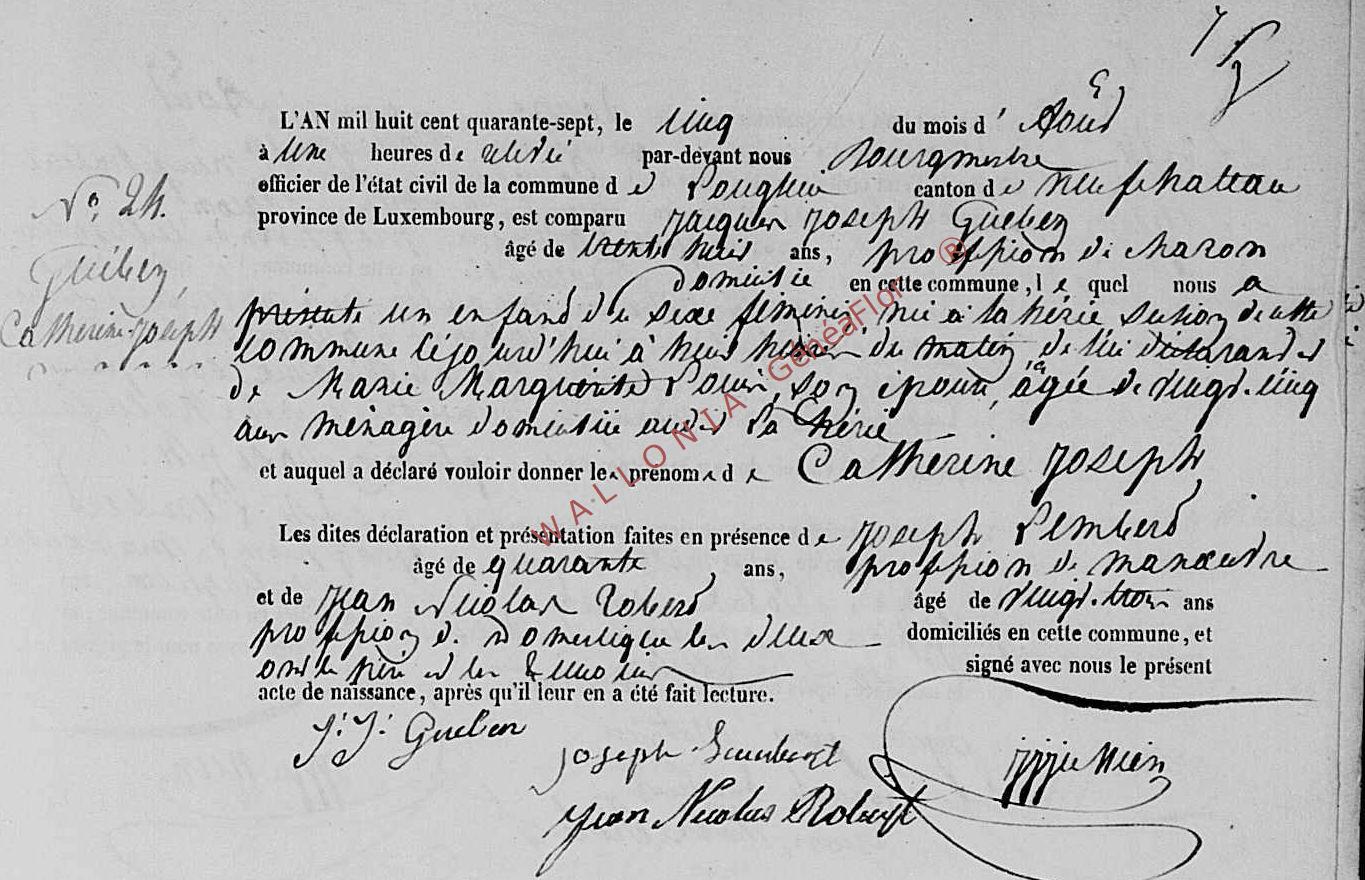 L'AN mil huit cent quarante-sept, le cinq du mois d' Aout
à une heures de relevé par-devant nous Bourgmestre
officier de l'état civil de la commune d e Longlier canton de neufchateau
province de Luxembourg, est comparu Jacques Joseph Guében
âgé de trente huit ans, proffesion de charon
domicilié en cette commune, le quel nous a
N°. 24.
Guében,
Catherine-Joseph
présenté un enfant du sexe féminin née à la hérie section de cette
commune cejourd'hui à huit heures du matin, de lui déclarand et
de Marie Marguerite Louis, son épouse, âgée de vingt-cinq
ans ménagère domiciliée audit la hérie
et auquel a déclaré vouloir donner les prénoms d e Catherine Joseph
Les dites déclaration et présentation faites en présence de Joseph Lembert
âgé de quarante ans, proffesion de manœuvre
et de Jean Nicolas Robert âgé de vingt-trois ans
proffesion de domestique les deux domiciliés en cette commune, et
ont le père et les témoins signé avec nous le présent
acte de naissance, après qu'il leur en a été fait lecture.
J. J. Gueben
Joseph Lambert
Jean Nicolas Robert
WALLONIA GénéaFlor ®